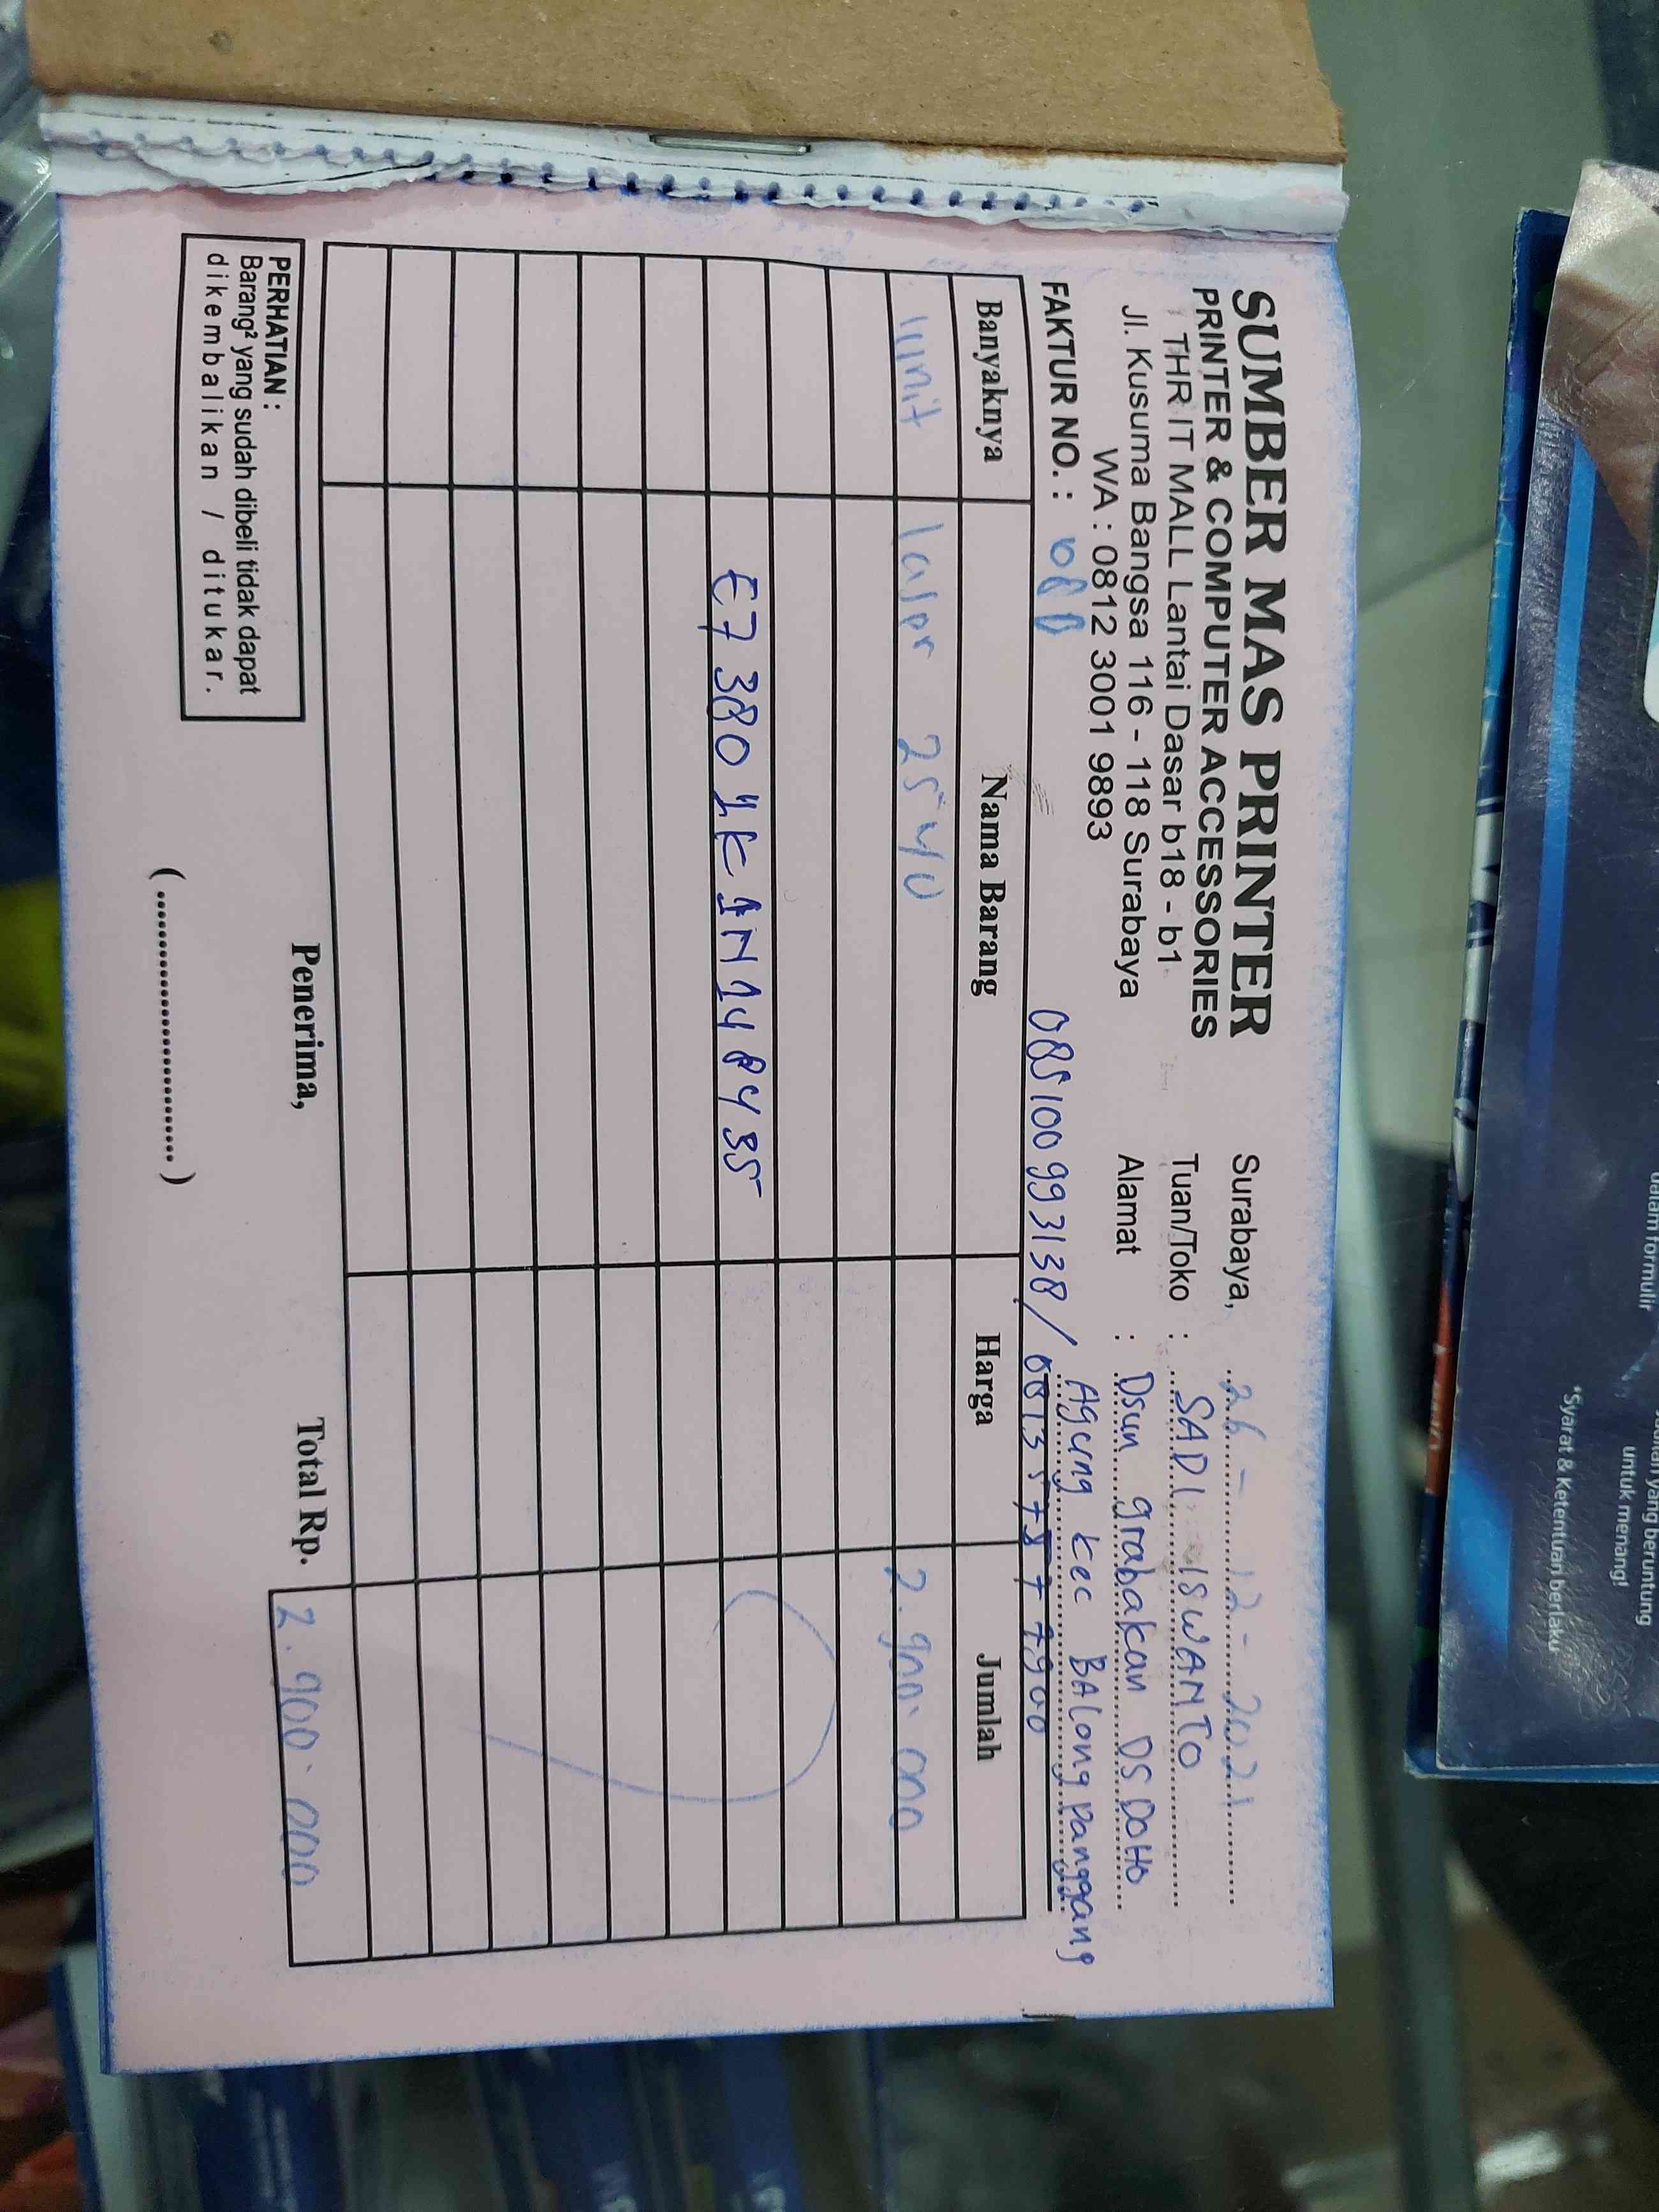 SUMBER MAS PRINTER
PRINTER & COMPUTER ACCESSORIES
THR IT MALL Lantai Dasar b18 - b1
Jl. Kusuma Bangsa 116 - 118 Surabaya
WA : 0812 3001 9893
FAKTUR NO. :
Surabaya, 26 - 12 - 2021
Tuan/Toko : SADI ISWANTO
Alamat : Dsun grabakan DS DOHO
Agung kec BAlong panggang
085100993138/
Banyaknya Nama Barang Harga Jumlah
1 unit laser 2540 2.900.000
E7380
PERHATIAN :
Barang² yang sudah dibeli tidak dapat
dikembalikan / ditukar.
Penerima,
(........................)
Total Rp. 2.900.000
dalam formulir
yang beruntung
untuk menang!
*Syarat & Ketentuan berlaku